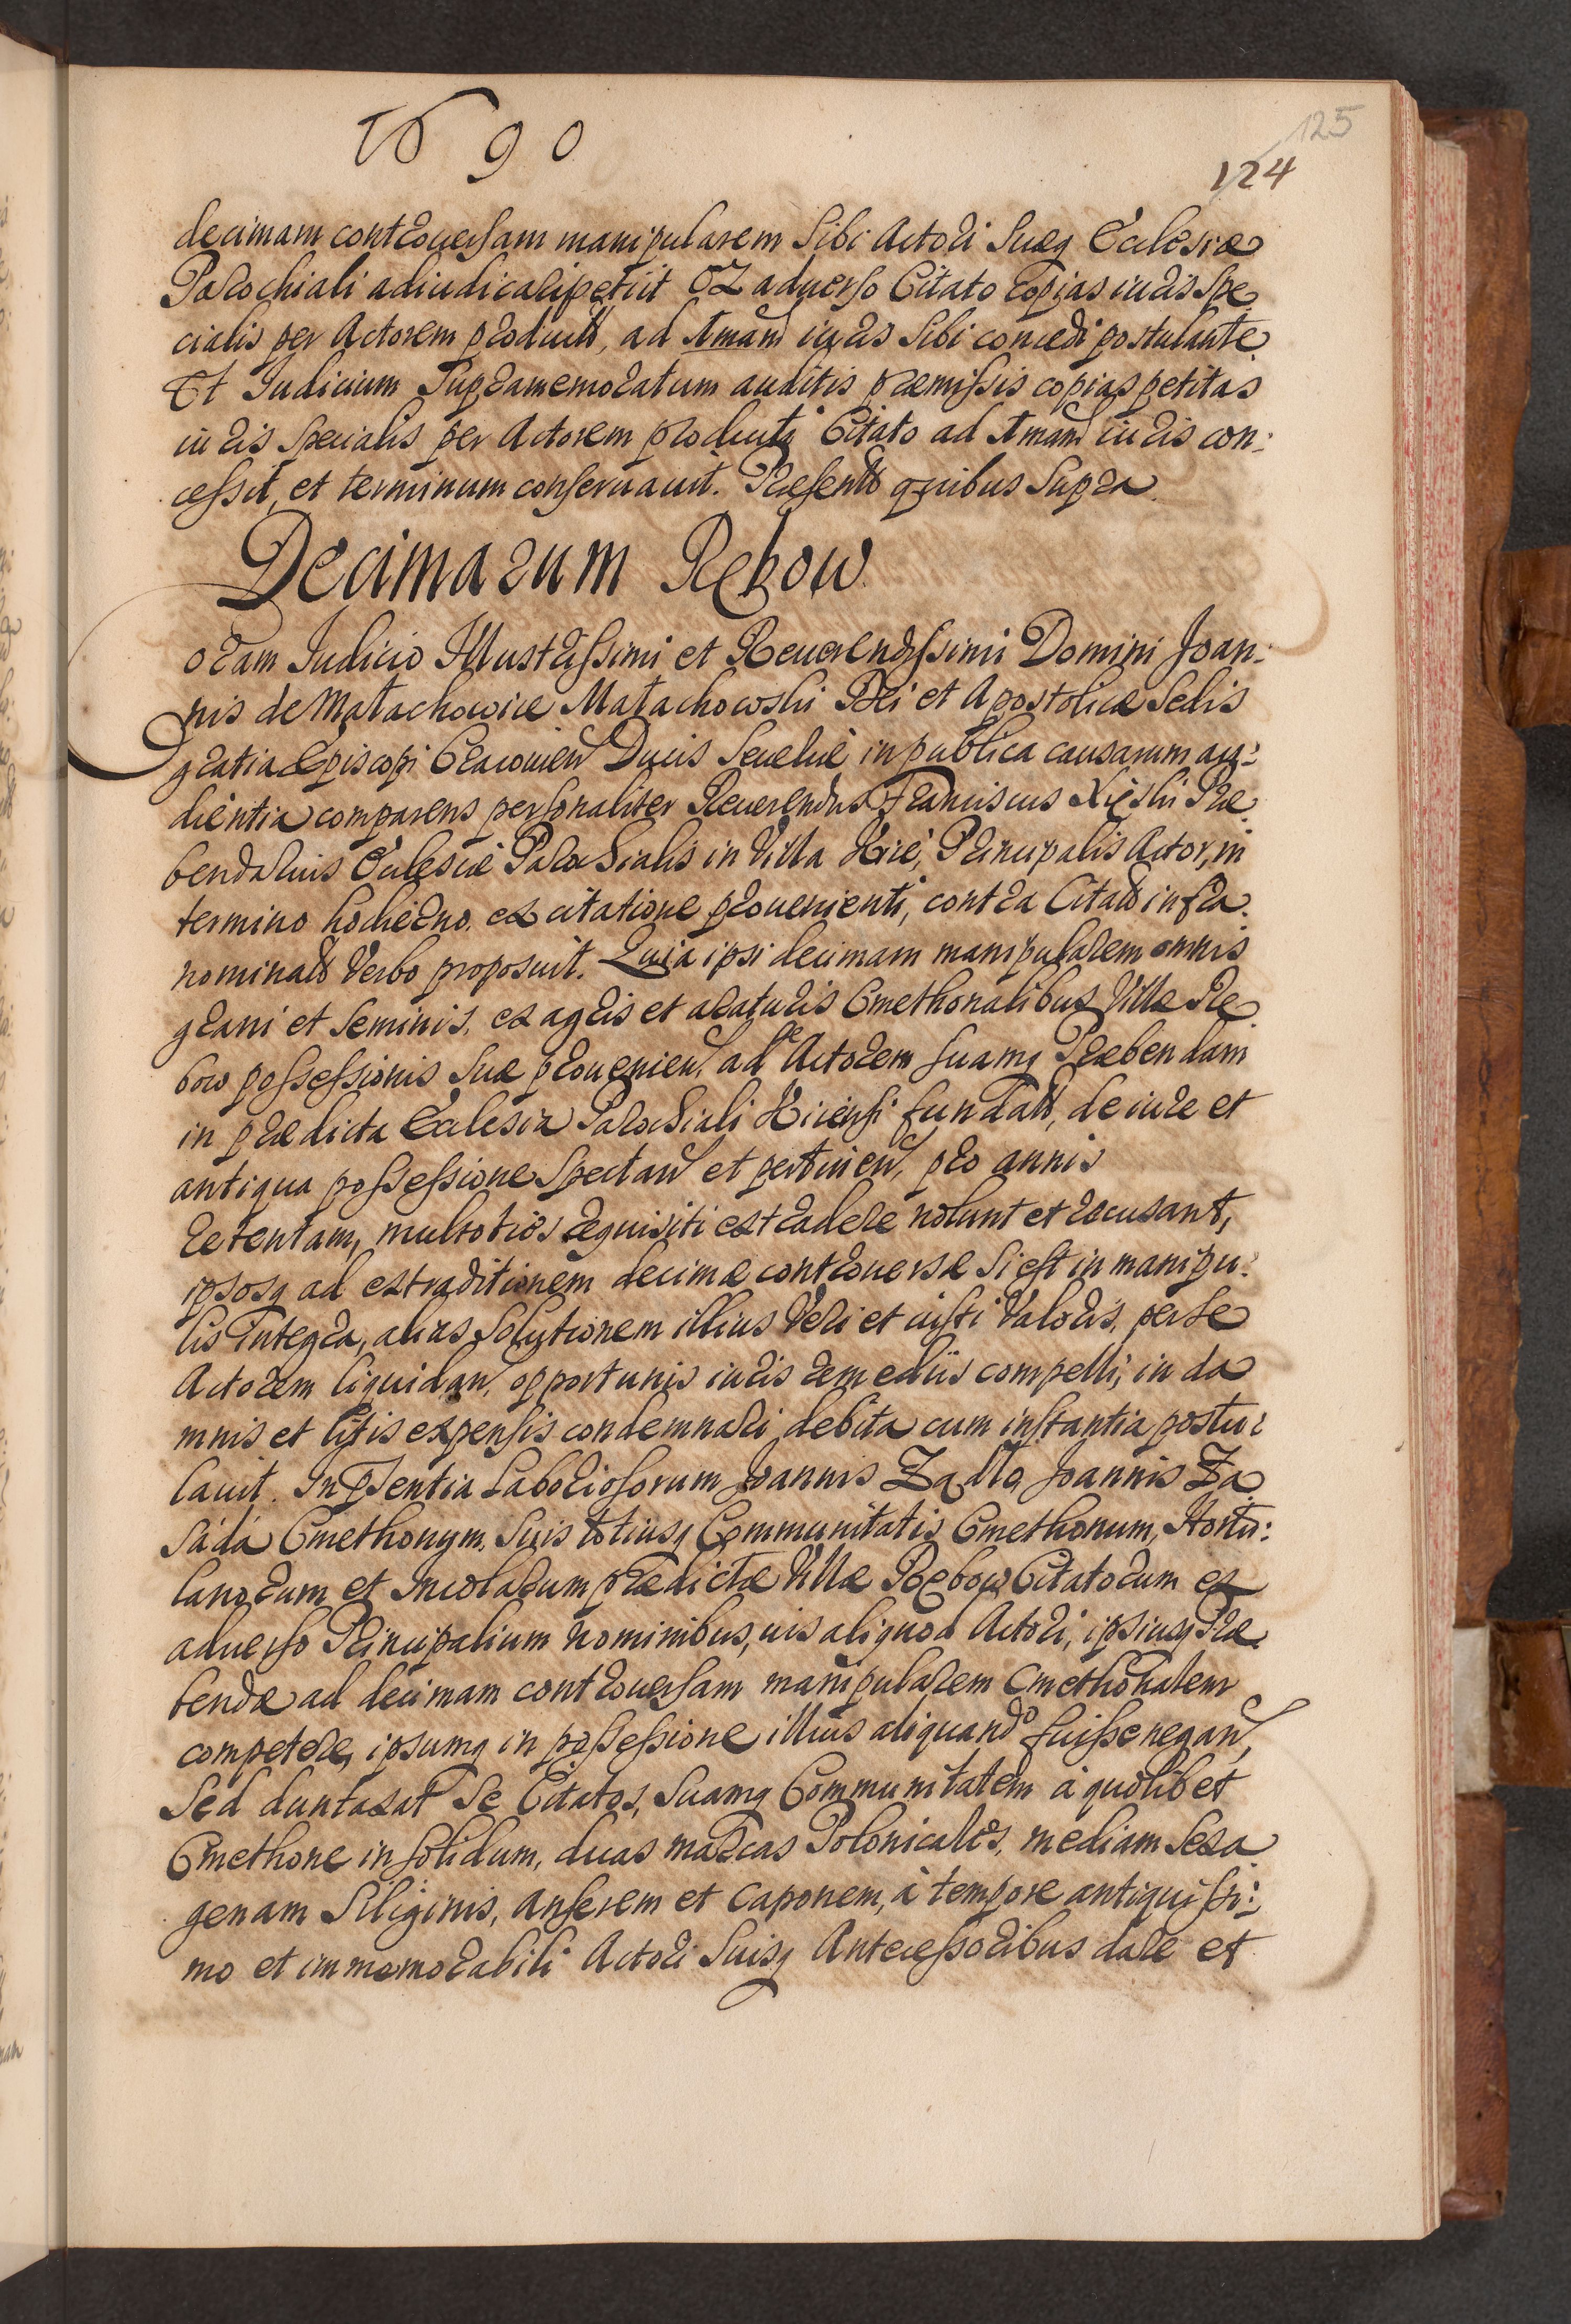 1690
125
124
decimam controuersam manipularem Sibi Actori Suæq Ecclesiæ
Parochiali adiudicari petiit Ex aduerso Citato copias iuris Spe
cialis per Actorem product, ad Amand iuris Sibi concedi postulante
Et Iudicium Supramemoratum auditis præmissis copias petitas
iuris Specialis per Actorem producti Citato ad Amand iuris con:
cessit, et terminum conseruauit. Præsentb quibus Supra
Decimarum Rębow
Coram Iudicio Illustrissimi et Reuerendissimi Domini Joan:
nis de Małachowice Małachowski Dei et Apostolicæ Sedis
gratia Episcopi Cracouien Ducis Seueriæ in publica causarum au:
dientia comparens personaliter Reuerendus Franciscus Præ
bendarius Ecclesiæ Parochialis in Villa Kiie, Principalis Actor, in
termino hodierno. ex citatione prouenienti, contra Citatos infra
nominatos Verbo proposuit. Quia ipsi decimam manipularem omnis
grani et Seminis. ex agris et araturis Cmethonalibus Villæ Rę
bow possessionis Suæ prouenien. ad Actorem Suamq Præbendam
in prædicta Ecclesia Parochiali Kiiensi fundat, de iure et
antiqua possessione Spectan et pertinen, pro annis
retentam, multoties requisiti extradere nolunt et recusant,
ipsosq ad extraditionem decimæ controuersæ Si est in manipu:
lis Integra, alias Solutionem illius Veri et iusti Valoris, per Se
Actorem liquidan, opportunis iuris remediis compelli, in da
mnis et litis expensis condemnari debita cum instantia postu:
lauit. In Psentia Laboriosorum Joannis Joannis Za
sada Cmethonum. Suis totiusq Communitatis Cmethonum, Hortu:
lanorum et Incolarum prædictæ Villæ Rębow Citatorum ex
aduerso Principalium Nominibus, ius aliquod Actori, ipsiusq Præ
bendæ ad decimam controuersam manipularem Cmethonalem
competere, ipsumq in possessione illius aliquando fuisse negan,
Sed duntaxat Se Citatos, Suamq Communitatem à quolibet
Cmethone in solidum, duas marcas Polonicales, mediam Sexa
genam Siliginis, anserem et caponem, à tempore antiquissi:
mo et immemorabili Actori Suisq Antecessoribus dare et